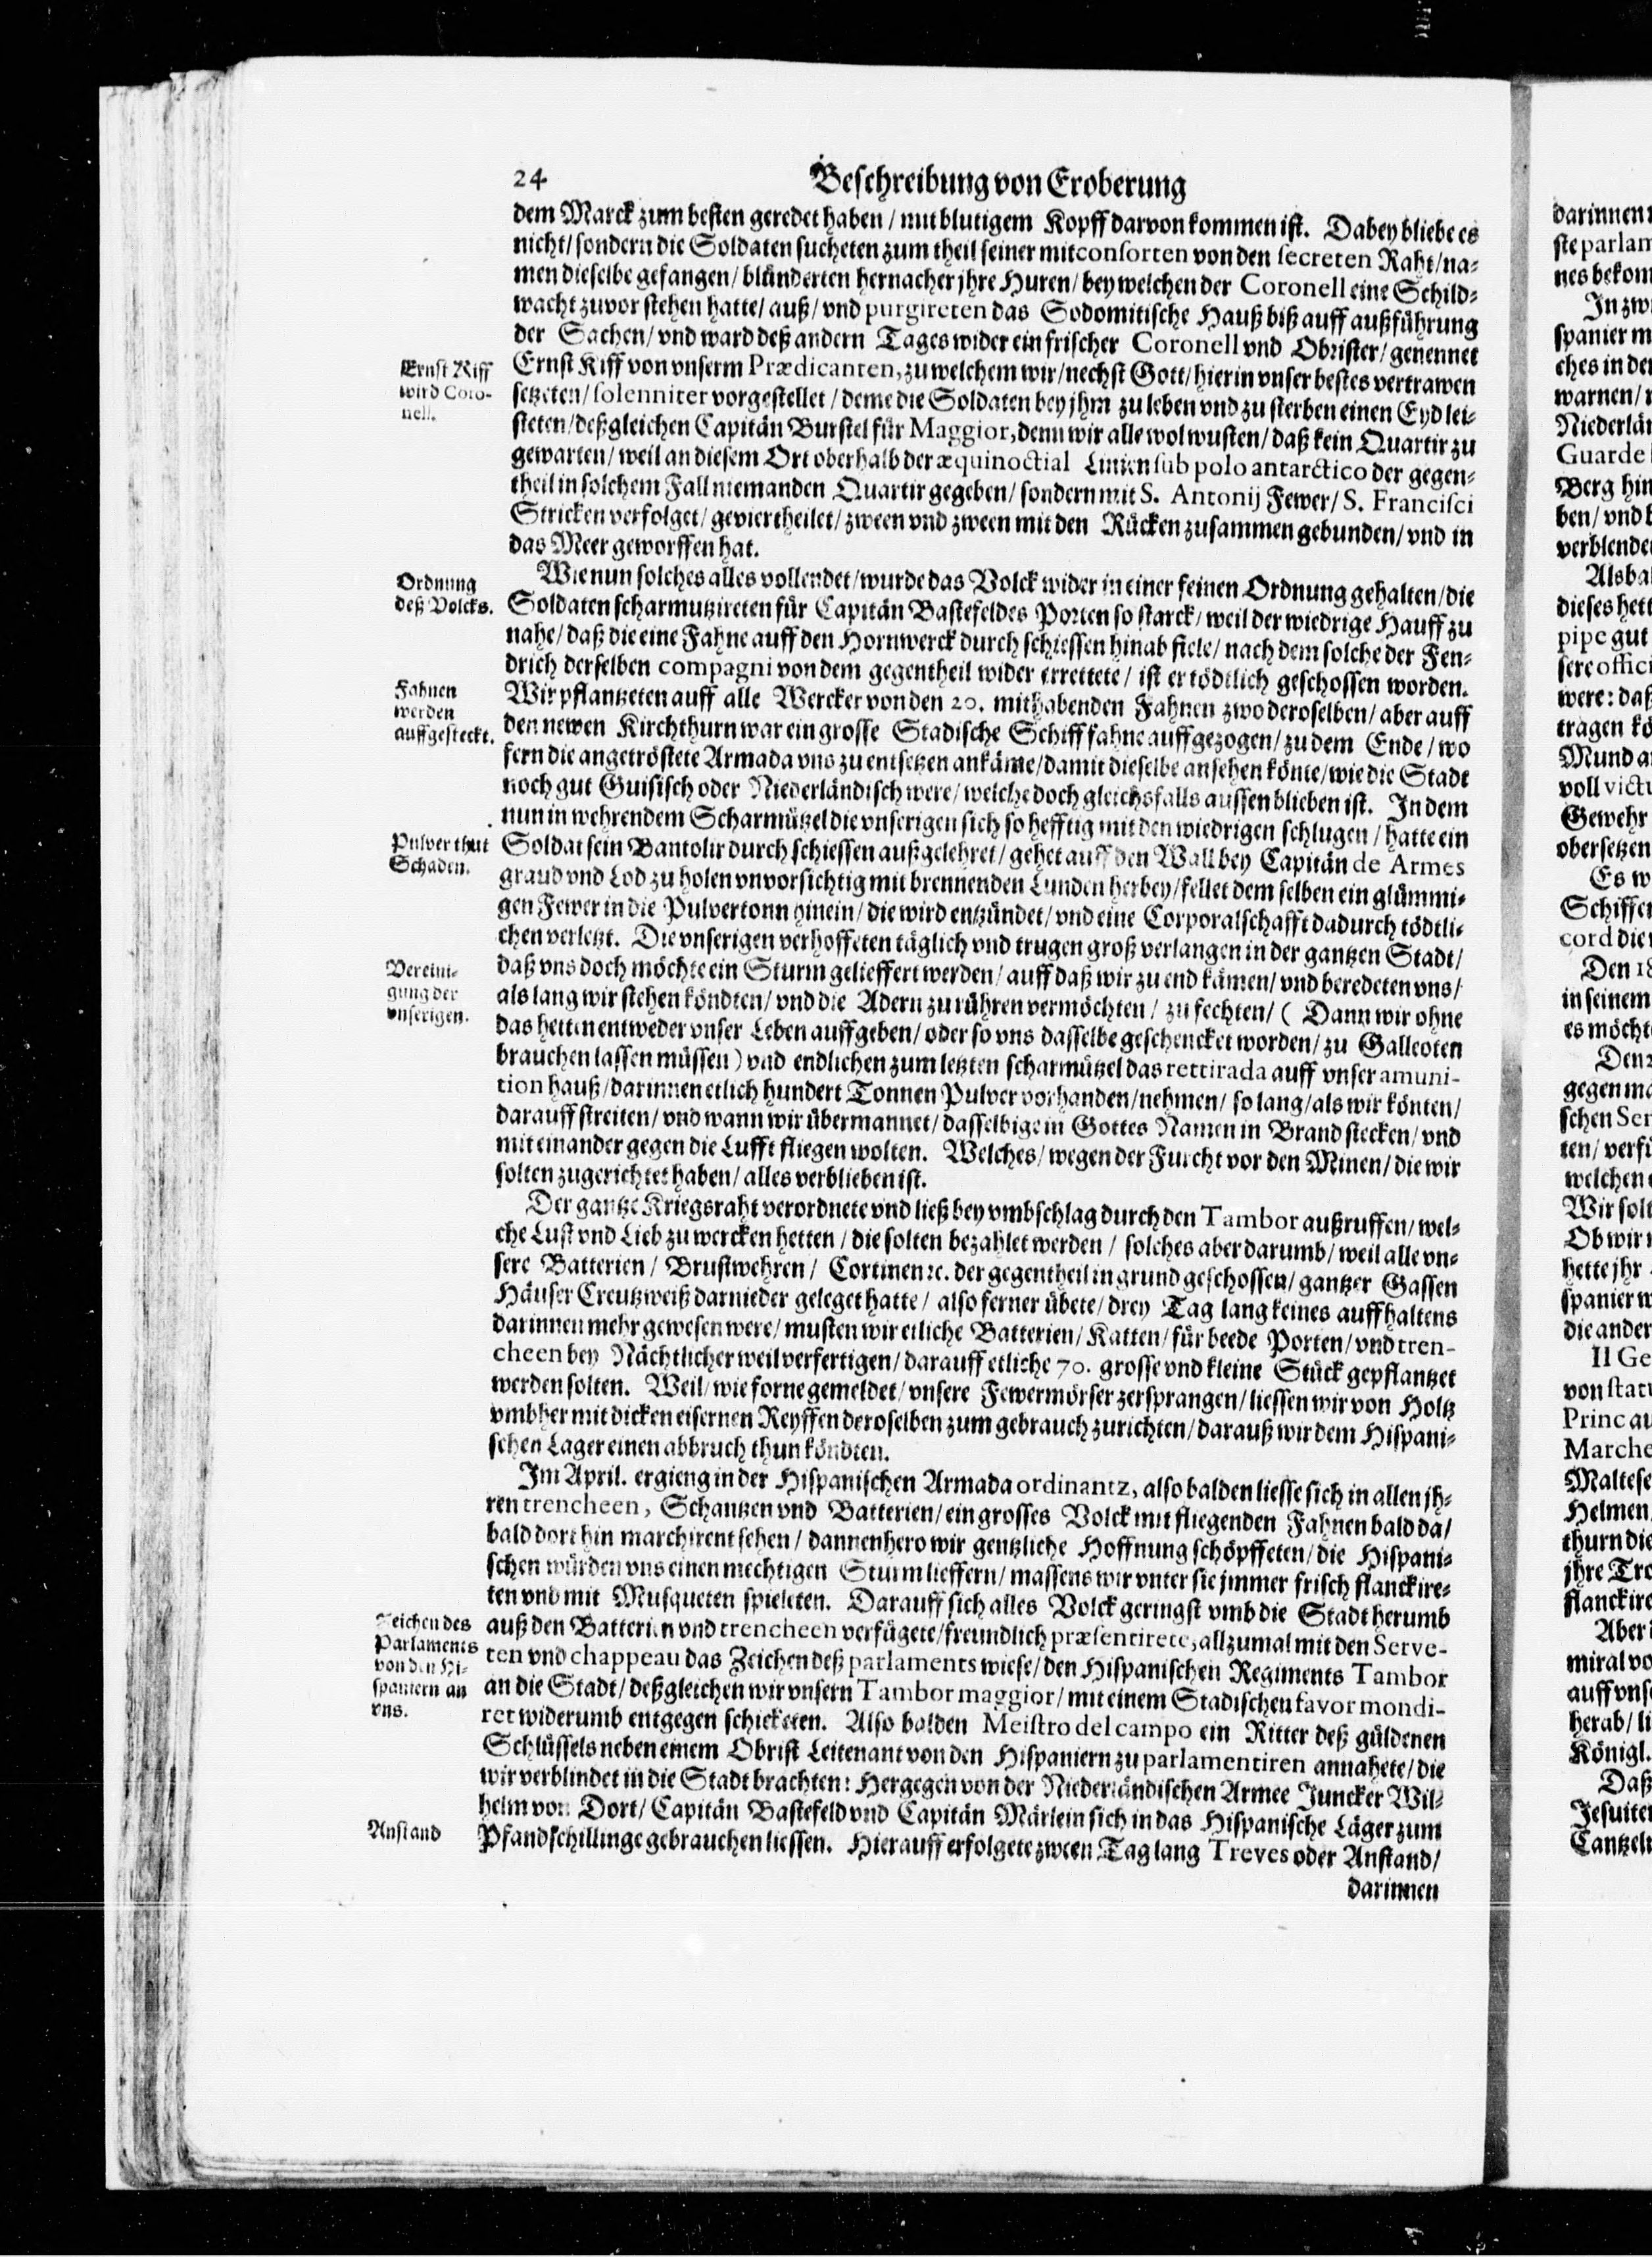 24
Beschreibung von Eroberung
dem Marck zum besten geredet haben / mit blutigem Kopff darvon kommen ist. Dabey bliebe es
nicht / sondern die Soldaten sucheten zum theil seiner mitconsorten von den secreten Raht / na-
men dieselbe gefangen / blünderten hernacher jhre Huren / bey welchen der Coronell eine Schild-
wacht zuvor stehen hatte / auß / vnd purgireten das Sodomitische Hauß biß auff außführung
der Sachen / vnd ward deß andern Tages wider ein frischer Coronell vnd Obrister / genennet
Ernst Riff
wird Coro-
nell.
Ernst Kiff von vnserm Prædicanten, zu welchem wir / nechst Gott / hierin vnser bestes vertrawen
setzeten / solenniter vorgestellet / deme die Soldaten bey jhm zu leben vnd zu sterben einen Eyd lei-
steten / deßgleichen Capitän Burstel für Maggior, denn wir alle wol wusten / daß kein Quartir zu
gewarten / weil an diesem Ort oberhalb der æquinoctial Linien sub polo antarctico der gegen-
theil in solchem Fall niemanden Quartir gegeben / sondern mit S. Antonij Fewer / S. Francisci
Stricken verfolget / geviertheilet / zween vnd zween mit den Rücken zusammen gebunden / vnd in
das Meer geworffen hat.
Ordnung
deß Volcks.
Wie nun solches alles vollendet / wurde das Volck wider in einer feinen Ordnung gehalten / die
Soldaten scharmutzireten für Capitän Bastefeldes Porten so starck / weil der wiedrige Hauff zu
nahe / daß die eine Fahne auff den Hornwerck durch schiessen hinab fiele / nach dem solche der Fen-
drich derselben compagni von dem gegentheil wider errettete / ist er tödtlich geschossen worden.
Fahnen
werden
auffgesteckt.
Wir pflantzeten auff alle Wercker von den 20. mithabenden Fahnen zwo deroselben / aber auff
den newen Kirchthurn war ein grosse Stadische Schiff fahne auffgezogen / zu dem Ende / wo
fern die angetröstete Armada vns zu entsetzen ankäme / damit dieselbe ansehen könte / wie die Stadt
noch gut Guisisch oder Niederländisch were / welche doch gleichsfalls aussen blieben ist. In dem
nun in wehrendem Scharmützel die vnserigen sich so hefftig mit den wiedrigen schlugen / hatte ein
Pulver thut
Schaden.
Soldat sein Bantolir durch schiessen außgelehret / gehet auff den Wall bey Capitän de Armes
graud vnd Lod zu holen vnvorsichtig mit brennenden Lunden herbey / fellet dem selben ein glümmi-
gen Fewer in die Pulvertonn hinein / die wird entzündet / vnd eine Corporalschafft dadurch tödtli-
chen verletzt. Die vnserigen verhoffeten täglich vnd trugen groß verlangen in der gantzen Stadt /
Vereini-
gung der
vnserigen.
daß vns doch möchte ein Sturm gelieffert werden / auff daß wir zu end kämen / vnd beredeten vns /
als lang wir stehen köndten / vnd die Adern zu rühren vermöchten / zu fechten / ( Dann wir ohne
das hetten entweder vnser Leben auffgeben / oder so vns dasselbe geschencket worden / zu Galleoten
brauchen lassen müssen ) vnd endlichen zum letzten scharmützel das rettirada auff vnser amuni-
tion hauß / darinnen etlich hundert Tonnen Pulver vorhanden / nehmen / so lang / als wir könten /
darauff streiten / vnd wann wir übermannet / dasselbige in Gottes Namen in Brand stecken / vnd
mit einander gegen die Lufft fliegen wolten. Welches / wegen der Furcht vor den Minen / die wir
solten zugerichtet haben / alles verblieben ist.
Der gantze Kriegsraht verordnete vnd ließ bey vmbschlag durch den Tambor außruffen / wel-
che Lust vnd Lieb zu wercken hetten / die solten bezahlet werden / solches aber darumb / weil alle vn-
sere Batterien / Brustwehren / Cortinen ꝛc. der gegentheil in grund geschossen / gantzer Gassen
Häuser Creutzweiß darnieder geleget hatte / also ferner übete / drey Tag lang keines auffhaltens
darinnen mehr gewesen were / musten wir etliche Batterien / Katten / für beede Porten / vnd tren-
cheen bey Nächtlicher weil verfertigen / darauff etliche 70. grosse vnd kleine Stück gepflantzet
werden solten. Weil / wie forne gemeldet / vnsere Fewermörser zersprangen / liessen wir von Holtz
vmbher mit dicken eisernen Reyffen deroselben zum gebrauch zurichten / darauß wir dem Hispani-
schen Lager einen abbruch thun köndten.
Im April. ergieng in der Hispanischen Armada ordinantz, also balden liesse sich in allen jh-
ren trencheen, Schantzen vnd Batterien / ein grosses Volck mit fliegenden Fahnen bald da /
bald dort hin marchirent sehen / dannenhero wir gentzliche Hoffnung schöpffeten / die Hispani-
schen würden vns einen mechtigen Sturm lieffern / massens wir vnter sie jmmer frisch flanckire-
ten vnd mit Musqueten spieleten. Darauff sich alles Volck geringst vmb die Stadt herumb
Zeichen des
Parlaments
von den Hi-
spaniern an
vns.
auß den Batterien vnd trencheen verfügete / freundlich præsentirete, allzumal mit den Serve-
ten vnd chappeau das Zeichen deß parlaments wiese / den Hispanischen Regiments Tambor
an die Stadt / deßgleichen wir vnsern Tambor maggior / mit einem Stadischen favor mondi-
ret widerumb entgegen schicketen. Also balden Meistro del campo ein Ritter deß güldenen
Schlüssels neben einem Obrist Leitenant von den Hispaniern zu parlamentiren annahete / die
wir verblindet in die Stadt brachten: Hergegen von der Niederländischen Armee Juncker Wil-
helm von Dort / Capitän Bastefeld vnd Capitän Märlein sich in das Hispanische Läger zum
Anstand
Pfandschillinge gebrauchen liessen. Hierauff erfolgete zween Tag lang Treves oder Anstand /
darinnen